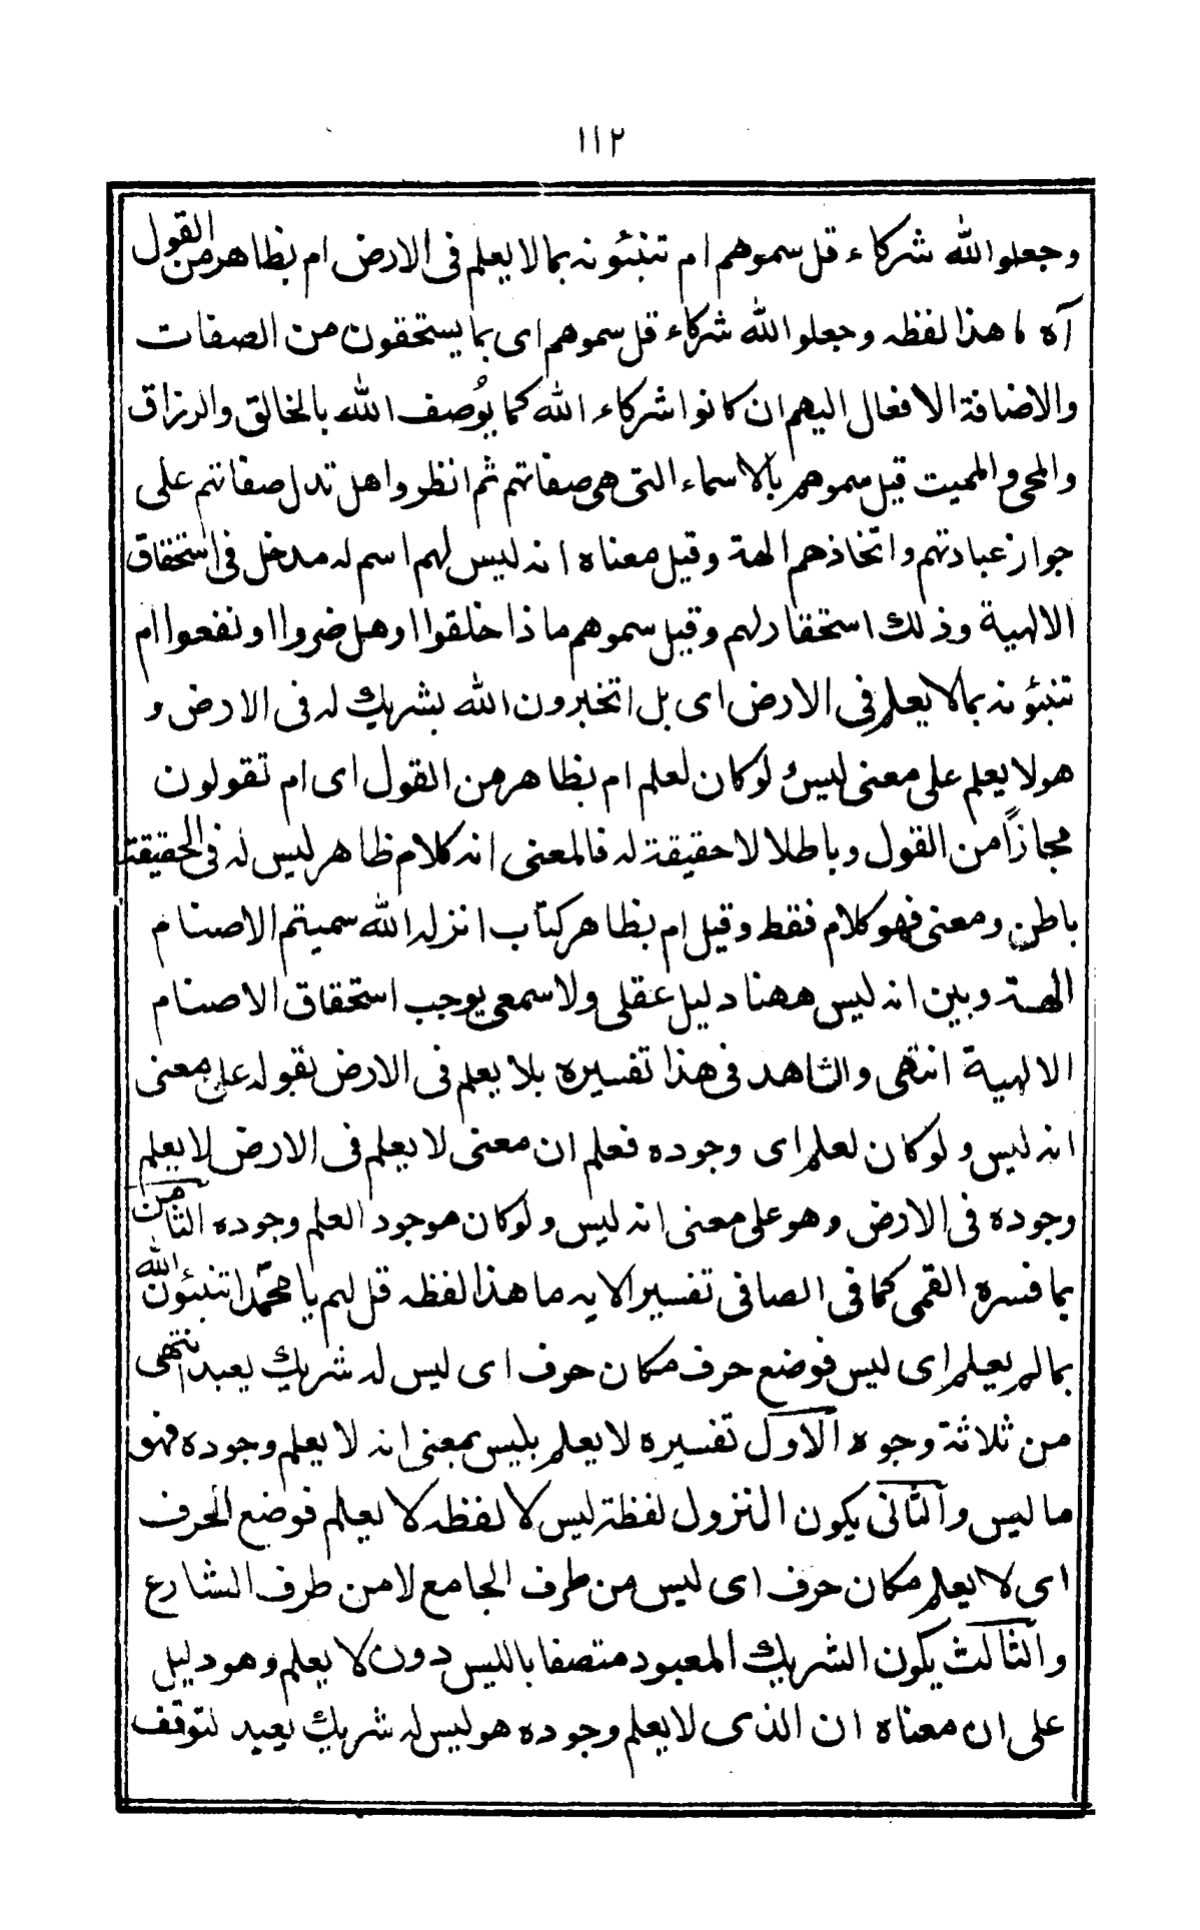 ١١٢
وجعلوا لله شركاء قل سموهم ام تنبئونه بما لا يعلم فى الارض ام بظاهر من القول
آه ما هذا لفظه وجعلوا لله شركاء قل سموهم اى بما يستحقون من الصفات
والاضافة الافعال اليهم ان كانوا شركاء الله كما يوُصف الله بالخالق والرزاق
والمحى والمميت قيل سموهم بالاسماء التى هى صفاتهم ثم انظروا هل تدل صفاتهم على
جواز عبادتهم واتخاذهم الهة وقيل معناه انه ليس لهم اسم له مدخل فى استحقاق
الالهية وذلك استحقار لهم وقيل سموهم ماذا خلقوا او هل ضروا او نفعوا ام
تنبئونه بما لا يعلم فى الارض اى بل اتخبرون الله بشريك له فى الارض و
هو لا يعلم على معنى ليس لو كان لعلم ام بظاهر من القول اى ام تقولون
مجازاً من القول وباطلا لا حقيقة له فالمعنى انه كلام ظاهر ليس له فى الحقيقة
باطن ومعنى فهو كلام فقط وقيل ام بظاهر كتاب انزله الله سميتم الاصنام
الهة وبين انه ليس ههنا دليل عقلى ولا سمعى يوجب استحقاق الاصنام
الالهية انتهى والشاهد فى هذا تفسيره بلا يعلم فى الارض بقوله على معنى
انه ليس ولو كان لعلم اى وجوده فعلم ان معنى لا يعلم فى الارض لا يعلم
وجوده فى الارض وهو على معنى انه ليس ولو كان موجود العلم وجوده الثامن
بما فسره القمى كما فى الصافى تفسير الايه ما هذا لفظه قل لهم يا محمّد اتنبئون الله
بما لم يعلم اى ليس فوضع حرف مكان حرف اى ليس له شريك يعبد انتهى
من ثلاثة وجوه الاول تفسيره لا يعلم بليس بمعنى انه لا يعلم وجوده فهو
ما ليس والثانى يكون النزول لفظة ليس لا لفظه لا يعلم فوضع الحرف
اى لا يعلم مكان حرف اى ليس من طرف الجامع لا من طرف الشارع
والثالث يكون الشريك المعبود متصفا بالليس دون لا يعلم وهو دليل
على ان معناه ان الذى لا يعلم وجوده هو ليس له شريك يعبد لتوقف